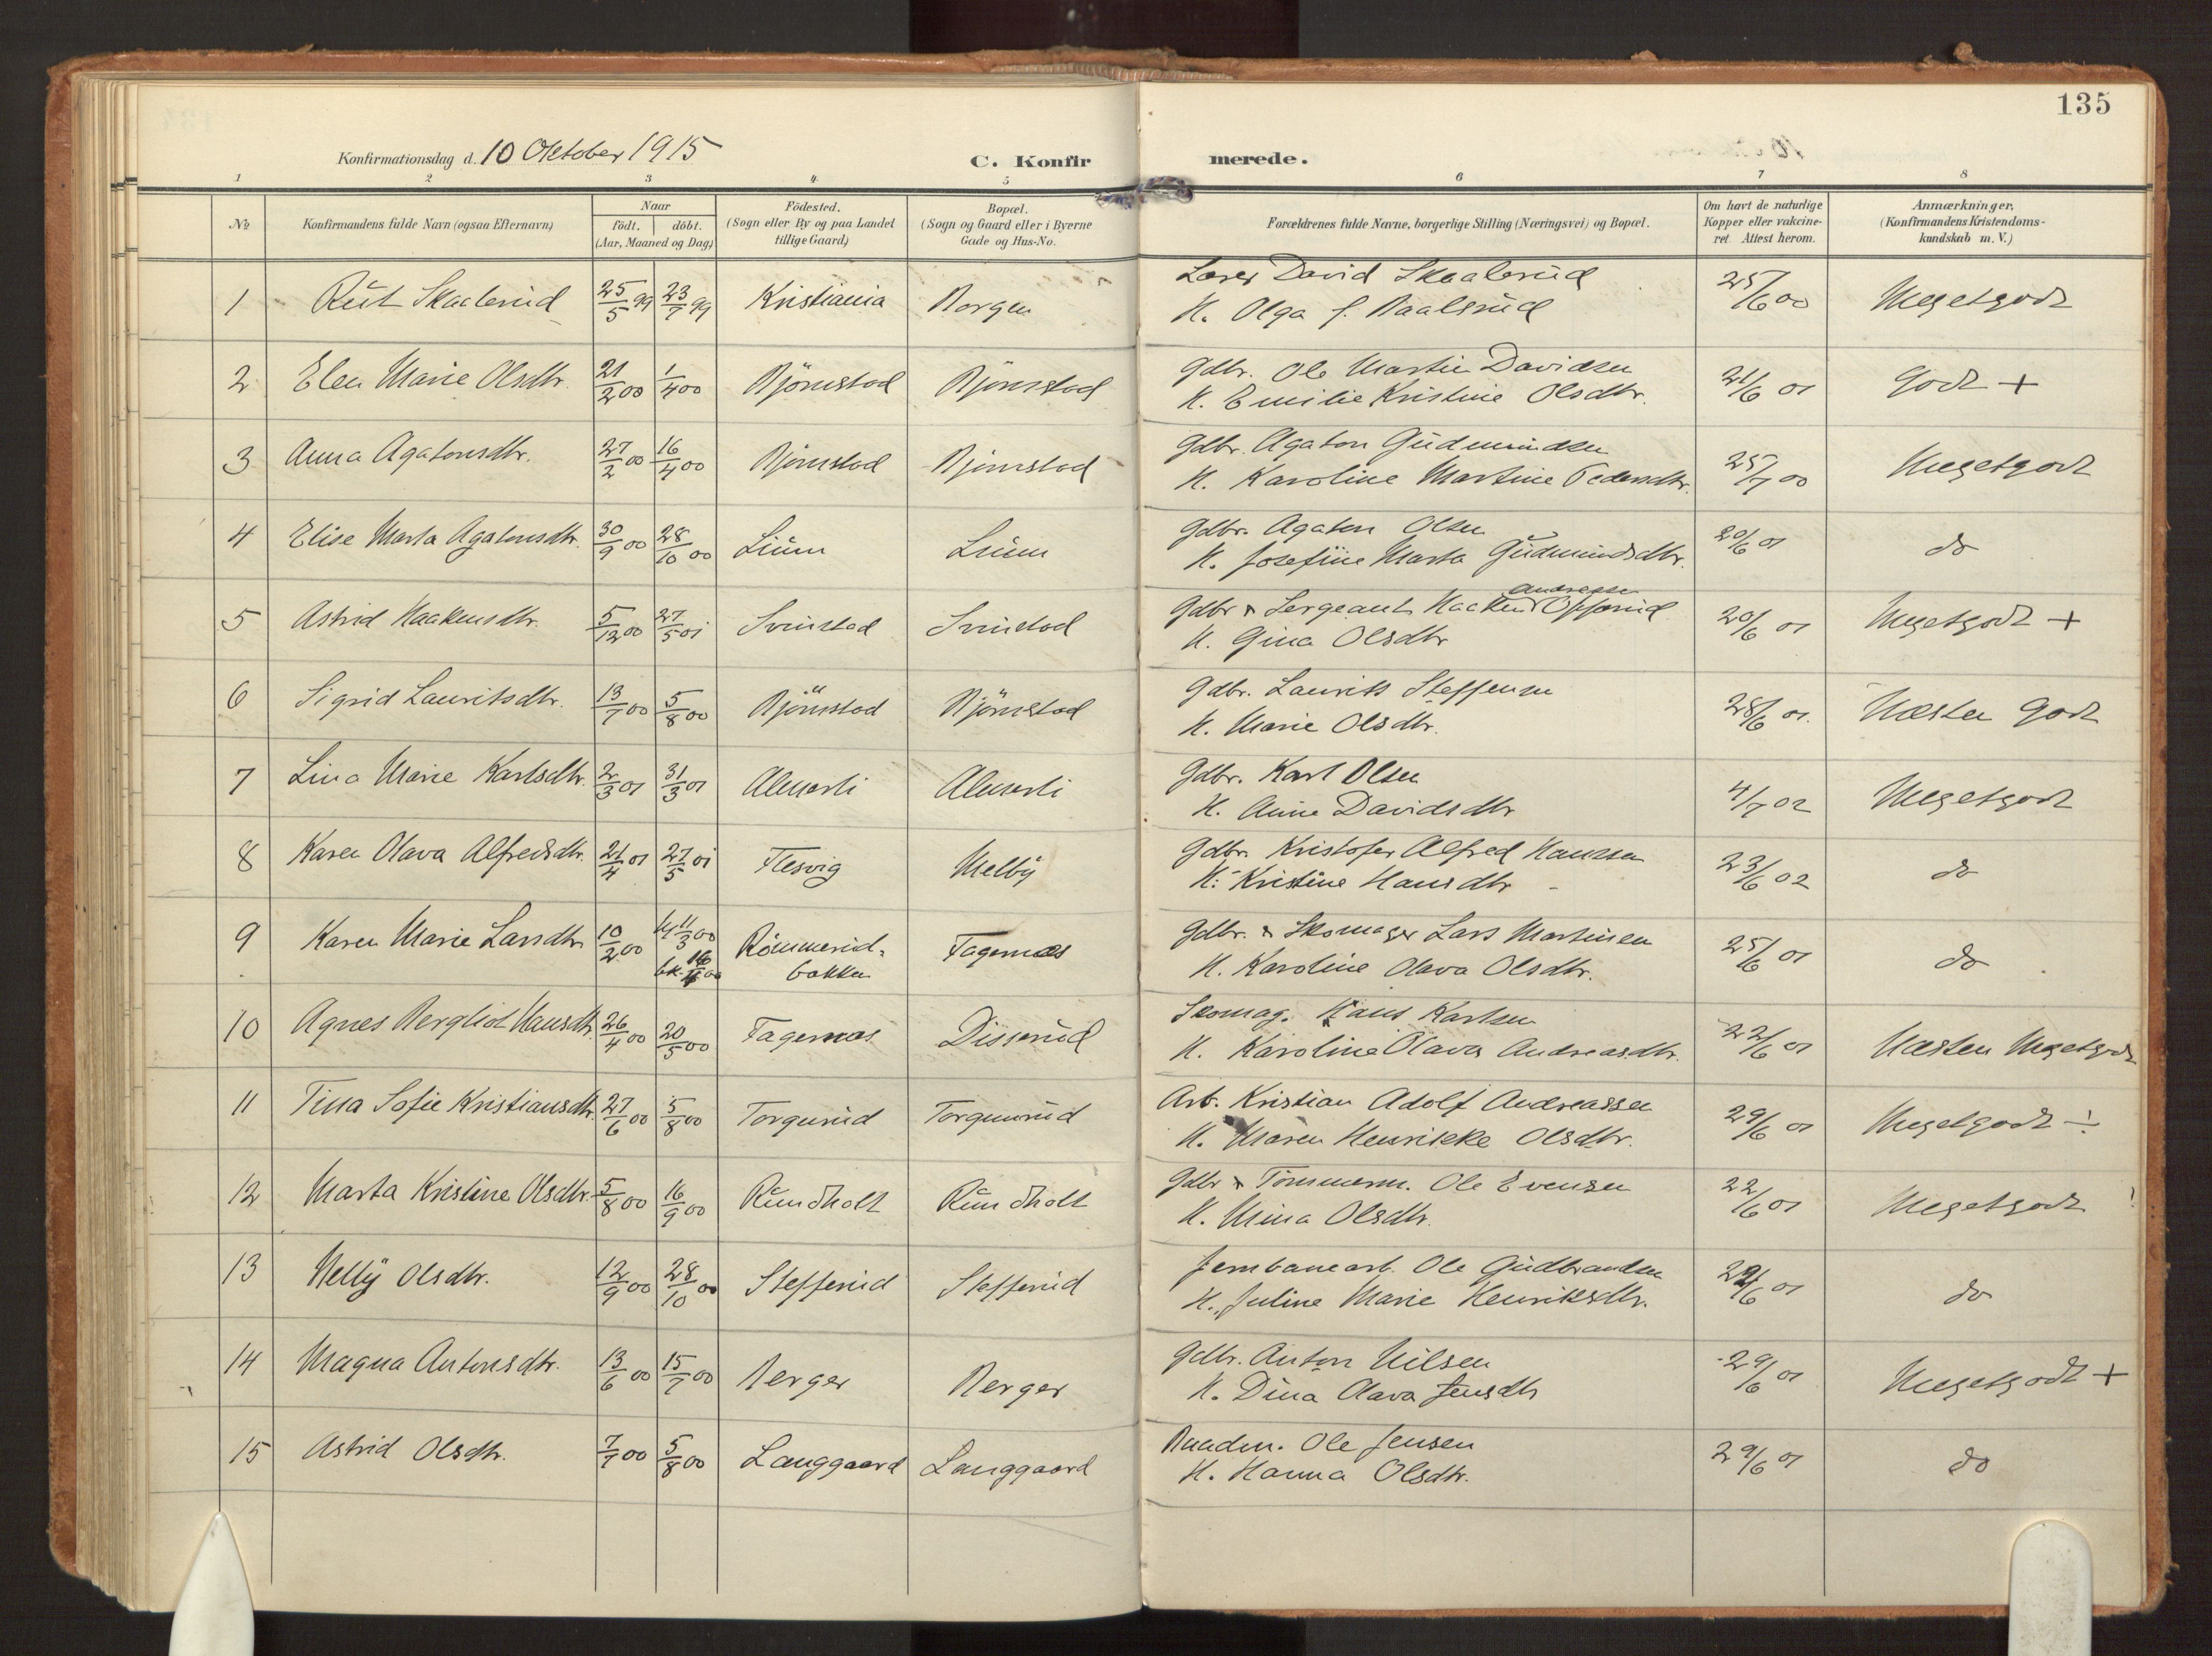 135
Konfirmationsdag d. 10 Oktober 1915 C. Konfir merede.
1 2 3 4 5 6 7 8
№ Konfirmandens fulde Navn (ogsaa Efternavn) Naar födt. döbt. (Aar, Maaned og Dag) Födested. (Sogn eller By og paa Landet tillige Gaard) Bopæl. (Sogn og Gaard eller i Byerne Gade og Hus-No. Forældrenes fulde Navne, borgerlige Stilling (Næringsvei) og Bopæl. Om havt de naturlige Kopper eller vakcine- ret. Attest herom. Anmærkninger. (Konfirmandens Kristendoms- kundskab m. V.)
1 Rut Skaalerud 25/5 99 23/7 99 Kristiania Borgen Lærer David Skaalerud 25/6 00 Megetgodt
H. Olga f. Baalsrud
2 Elen Marie Olsdtr. 21/2 00 1/4 00 Björnstad Björnstad Gdbr. Ole Martin Davidsen 21/6 01 Godt +
H. Emilie Kristine Olsdtr.
3 Anna Agatonsdtr. 27/2 00 16/4 00 Björnstad Björnstad Gdbr. Agaton Gudmundsen 25/7 00 Megetgodt
H. Karoline Martine Pedersdtr.
4 Elise Marta Agatonsdtr. 30/9 00 28/10 00 Lium Lium Gdbr. Agaton Olsen 20/6 01 do
H. Josefine Marta Gudmundsdtr.
5 Astrid Haakensdtr. 5/12 00 27/5 01 Svinstad Svinstad Gdbr & Sergeant Haaken Andresen Opperud 20/6 01 Megetgodt +
H. Gina Olsdtr
6 Sigrid Lauritsdtr. 13/7 00 5/8 00 Björnstad Björnstad Gdbr. Laurits Steffensen 28/6 01. Næsten Godt
H. Marie Olsdtr.
7 Lina Marie Karlsdtr. 2/3 01 31/3 01 Almerli Almerli Gdbr. Karl Olsen 4/7 02 Megetgodt
H. Anne Davidsdtr
8 Karen Olava Alfredsdtr. 21/4 01 27/5 01 Flesvig Melby Gdbr. Kristofer Alfred Hansen 23/6 02 do
H. Kristine Hansdtr -
9 Karen Marie Larsdtr 10/2 00 hj 11/3 00 Römmerud- Fagernæs Gdbr. & Skomager Lars Martinsen 25/6 01 do
bk. 16/4 00 bakken H. Karoline Olava Olsdtr.
10 Agnes Bergliot Hansdtr. 26/4 00 20/5 00 Fagernæs Disserud Skomag. Hans Karlsen 22/6 01 Næsten Megetgodt
H. Karoline Olava Andreasdtr.
11 Tina Sofie Kristiansdtr. 27/6 00 5/8 00 Torgunrud Torgunrud Arb. Kristian Adolf Andreassen 29/6 01 Megetgodt ÷
H. Maren Henrikke Olsdtr.
12 Marta Kristine Olsdtr. 5/8 00 16/9 00 Rundholt Rundholt Gdbr & Tömmerm. Ole Evensen 22/6 01 Megetgodt
H. Mina Olsdtr.
13 Nelly Olsdtr. 12/9 00 28/10 00 Stefferud Stefferud Jernbanearb. Ole Gudbrandsen /6 01 do
H. Juline Marie Henriksdtr.
14 Magna Antonsdtr. 13/6 00 15/7 00 Berger Berger Gdbr. Anton Nilsen 29/6 01 Megetgodt +
H. Dina Olava Jensdtr
15 Astrid Olsdtr. 7/7 00 5/8 00 Langgaard Langgaard Baadm. Ole Jensen 29/6 01 do
H. Hanna Olsdtr.